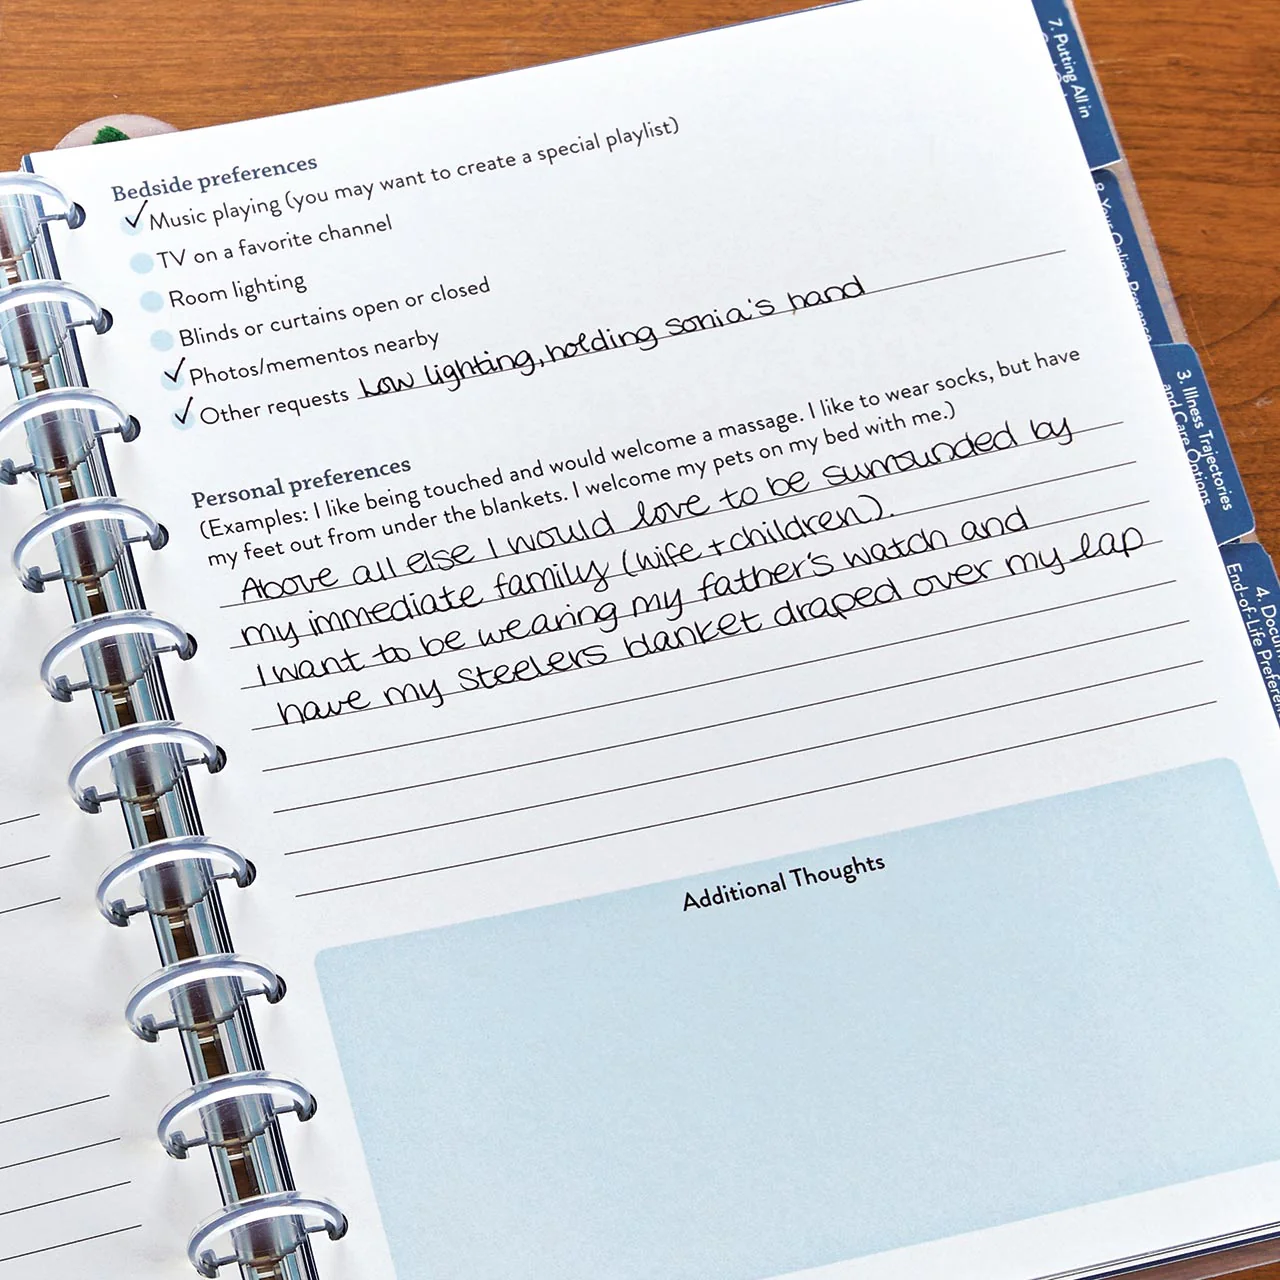 Bedside preferences
Music playing (you may want to create a special playlist)
TV on a favorite channel
Room lighting
Blinds or curtains open or closed
Photos/mementos nearby
Other requests Low lighting, holding sonia's hand
Personal preferences
(Examples: I like being touched and would welcome a massage. I like to wear socks, but have
my feet out from under the blankets. I welcome my pets on my bed with me.)
Above all else I would love to be surrounded by
my immediate family (wife + children).
I want to be wearing my father's watch and
have my Steelers blanket draped over my lap
Additional Thoughts
7. Putting All in
Your Online Presence
3. Illness Trajectories
and Care Options
4.
End-of-Life